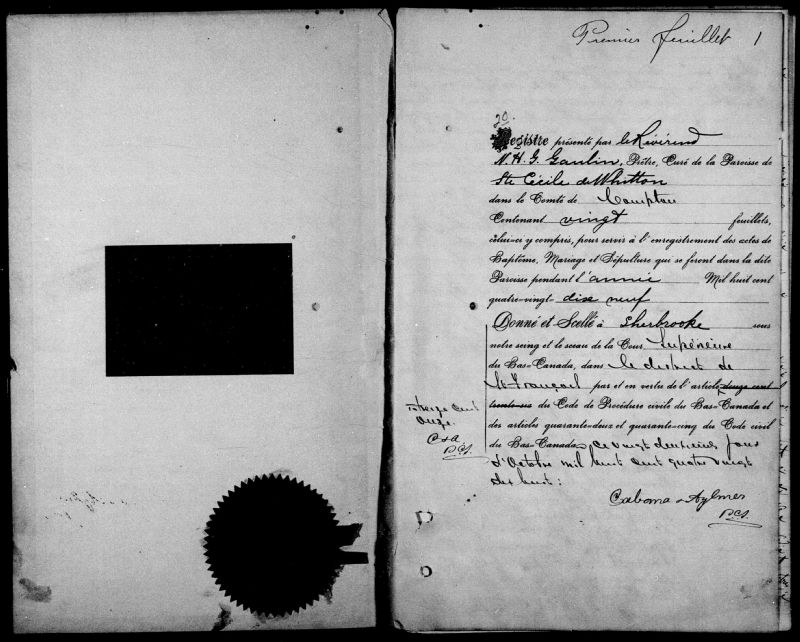 Premier feuillet 1
20.
Registre présenté par le Révérend
N. H. G. Gaulin, Prêtre, Curé de la Paroisse de
Ste Cécile de Whitton
dans le Comté de Compton
Contenant vingt feuillets,
celui-ci y compris, pour servir à l'enregistrement des actes de
Baptême, Mariage et Sépulture qui se feront dans la dite
Paroisse pendant l'année Mil huit cent
quatre-vingt- dix neuf
Donné et Scellé à Sherbrooke sous
notre seing et le sceau de la Cour Supérieure
du Bas-Canada, dans le district de
St François par et en vertu de l'article douze cent
trente-six du Code de Procédure civile du Bas-Canada et
treize cent
onze.
C & A
P.C.S.
des articles quarante-deux et quarante-cinq du Code civil
du Bas-Canada, ce vingt jour
d'Octobre mil huit cent quatre vingt
dix huit:
Cabana & Aylmer
P.C.S.